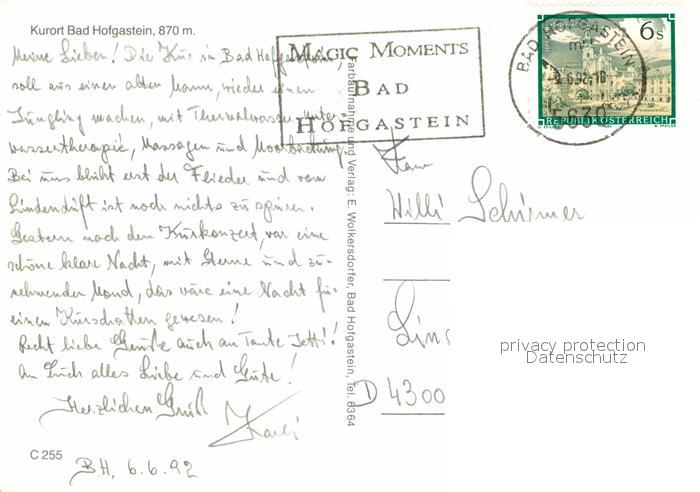 Kurort Bad Hofgastein, 870 m.
Meine Lieben! Die Kur in Bad Hofgastein,
soll aus einen alten Mann, wieder einen
Jüngling machen, mit Thermalwasser, Unter-
wassertherapie, Massagen und Moorpackung.
Bei uns blüht erst der Flieder und vom
Lindenduft ist noch nichts zu spüren.
Gestern nach dem Kurkonzert, war eine
schöne klare Nacht, mit Sterne und zu-
nehmender Mond, das wäre eine Nacht für
einen Kurschatten gewesen!
Recht liebe Grüße auch an Tante Jetti!
An Euch alles Liebe und Gute!
Herzlichen Gruß
Karli
C 255
BH, 6.6.92
Farbaufnahme und Verlag: E. Wolkersdorfer, Bad Hofgastein, Tel. 6364
MAGIC MOMENTS
BAD
HOFGASTEIN
BAD HOFGASTEIN
.6.92-18
5630
6 S
REPUBLIK ÖSTERREICH
Willi Schirmer
D 4300
privacy protection
Datenschutz